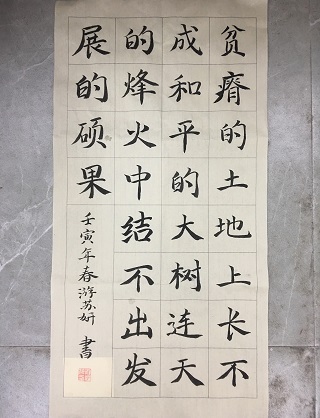 贫瘠的土地上长不
成和平的大树连天
的烽火中结不出发
展的硕果
壬寅年春游苏妍 書